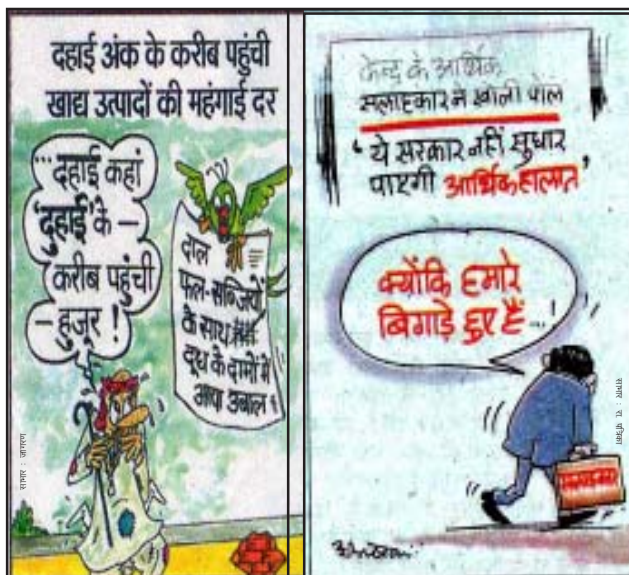 दहाई अंक के करीब पहुंची
खाद्य उत्पादों की महंगाई दर
...दहाई कहां
'दुहाई' के –
करीब पहुंची
– हुज़ूर !
दाल
फल-सब्जियों
के साथ
दूध के दामों में
आया उबाल
साभार : जागरण
केन्द्र के आर्थिक
सलाहकार ने खोली पोल
' ये सरकार नहीं सुधार
पाएगी आर्थिक हालात '
क्योंकि हमारे
बिगाड़े हुए हैं...!
सलाहकार